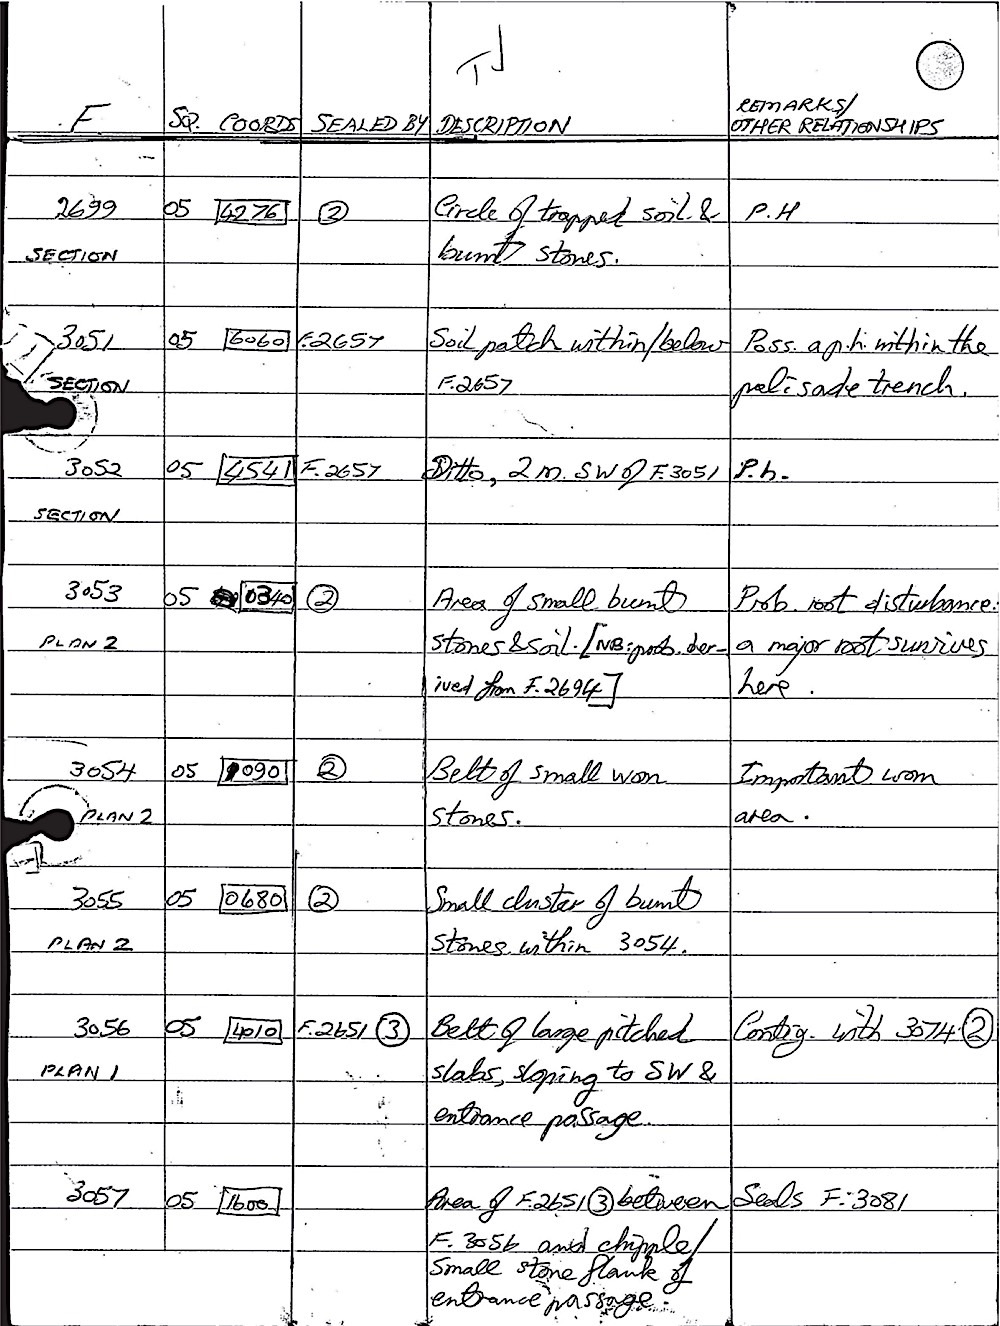 TJ
REMARKS/
F SQ. COORDS SEALED BY DESCRIPTION OTHER RELATIONSHIPS
2699 05 4276 2 Circle of trapped soil & P.H
SECTION burnt stones.
3051 05 6060 F.2657 Soil patch within/below Poss. a p.h. within the
SECTION F.2657 palisade trench.
3052 05 4541 F.2657 Ditto, 2 m. SW of F.3051 P.h.
SECTION
3053 05 0340 2 Area of small burnt Prob. root disturbance:
PLAN 2 stones & soil. [NB: prob. der- a major root survives
ived from F.2694] here.
3054 05 1090 2 Belt of small worn Important worn
PLAN 2 stones. area.
3055 05 0680 2 Small cluster of burnt
PLAN 2 stones within 3054.
3056 05 4010 F.2651 3 Belt of large pitched Contig. with 3074 2
PLAN 1 slabs, sloping to SW &
entrance passage.
3057 05 1600 Area of F.2651 3 between Seals F.3081
F.3056 and chipple/
small stone flank of
entrance passage.